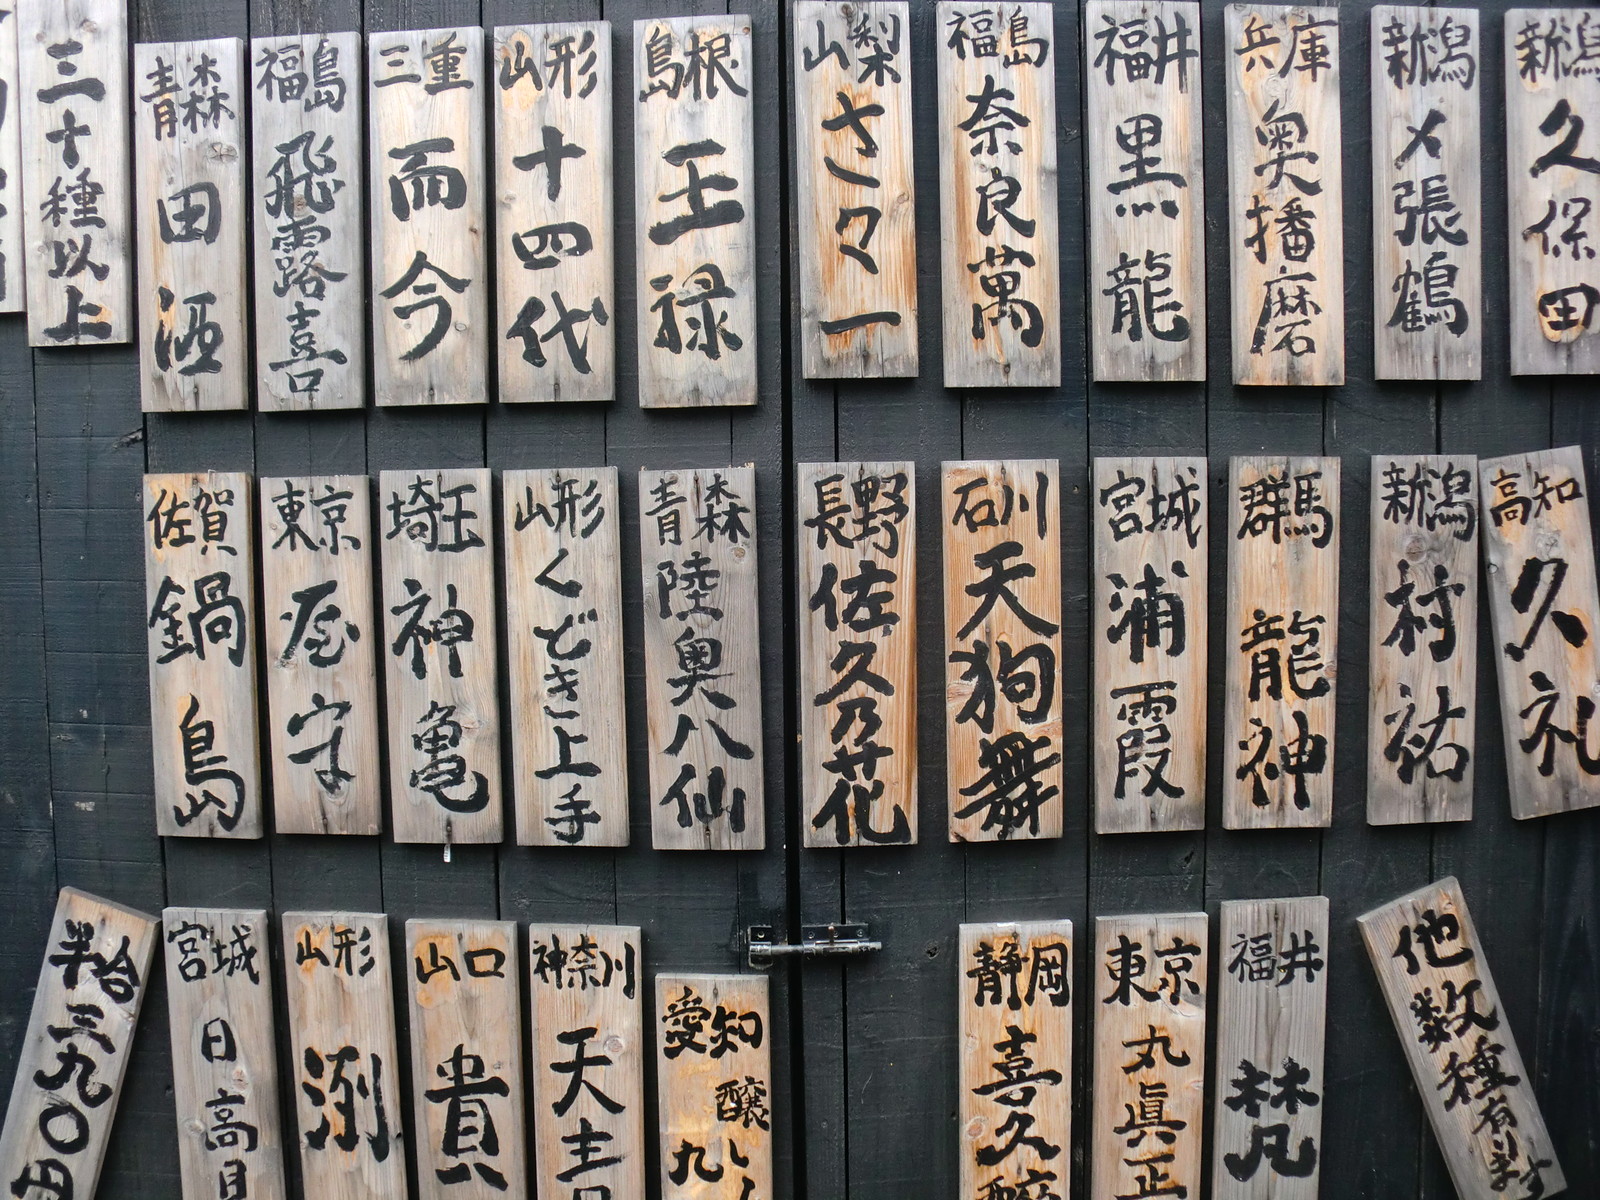 三十種以上
青森 田酒
福島 飛露喜
三重 而今
山形 十四代
島根 王禄
山梨 さ々一
福島 奈良萬
福井 黒龍
兵庫 奥播磨
新潟 〆張鶴
新潟 久保田
佐賀 鍋島
東京 屋守
埼玉 神亀
山形 くどき上手
青森 陸奥八仙
長野 佐久乃花
石川 天狗舞
宮城 浦霞
群馬 龍神
新潟 村祐
高知 久礼
半合三九〇円
宮城 日高見
山形 洌
山口 貴
神奈川 天
愛知 醸し九
静岡 喜久酔
東京 丸眞正
福井 梵
他数種有ります